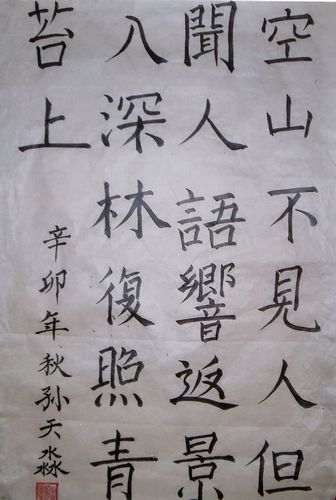 空山不見人但
聞人語響返景
入深林復照青
苔上
辛卯年秋孙天淼